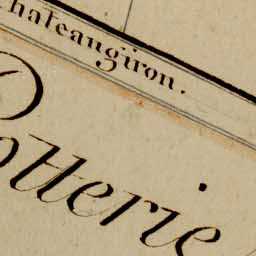 hateaugiron.
otterie